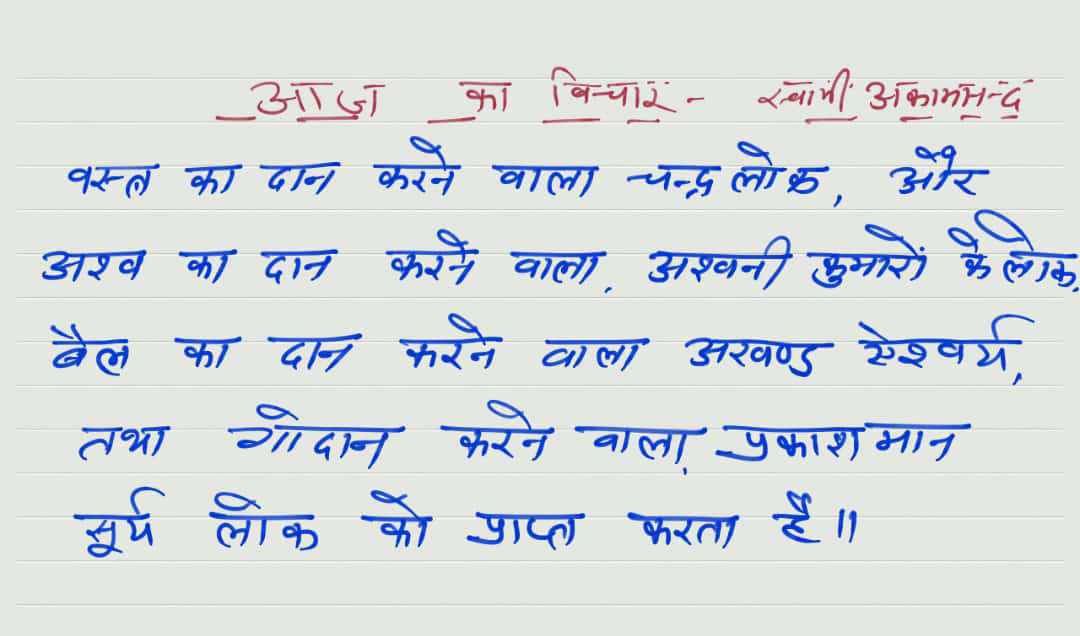 आज का विचार - स्वामी अकामानन्द
वस्त्र का दान करने वाला चन्द्र लोक, और
अश्व का दान करने वाला, अश्वनी कुमारों के लोक,
बैल का दान करने वाला अखण्ड ऐश्वर्य,
तथा गोदान करने वाला, प्रकाशमान
सूर्य लोक को प्राप्त करता है॥